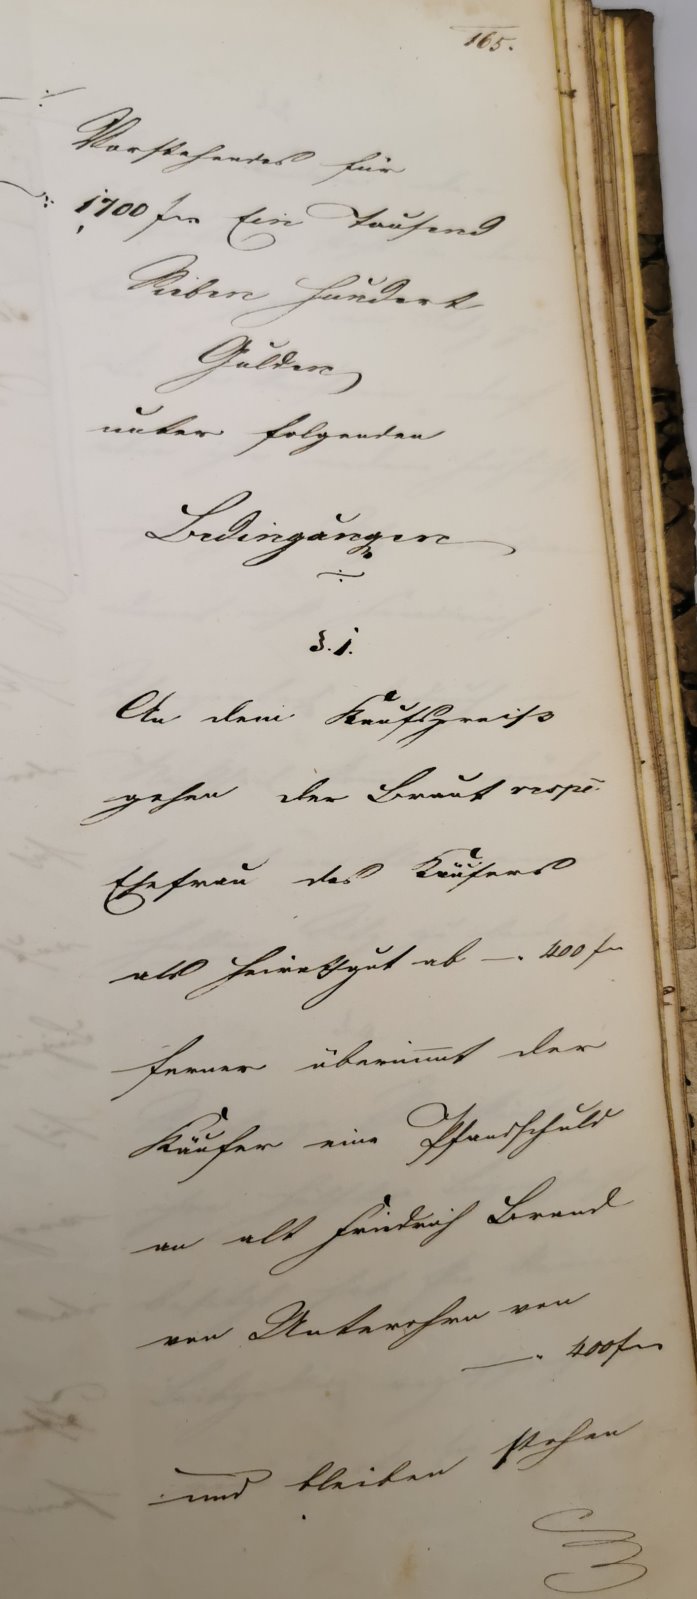 165.
Vorstehendes für
1700 f. Ein Tausend
Sieben Hundert
Gulden
unter folgenden
Bedingungen
§. 1.
An dem Kaufspreiß
gehen der Braut resp.
Ehefrau des Käufers
als Heirathgut ab —. 400 f.
ferner übernimmt der
Käufer eine Pfandschuld
an alt Friedrich Brand
von Unterohrn von
—. 400 f.
und bleiben stehen